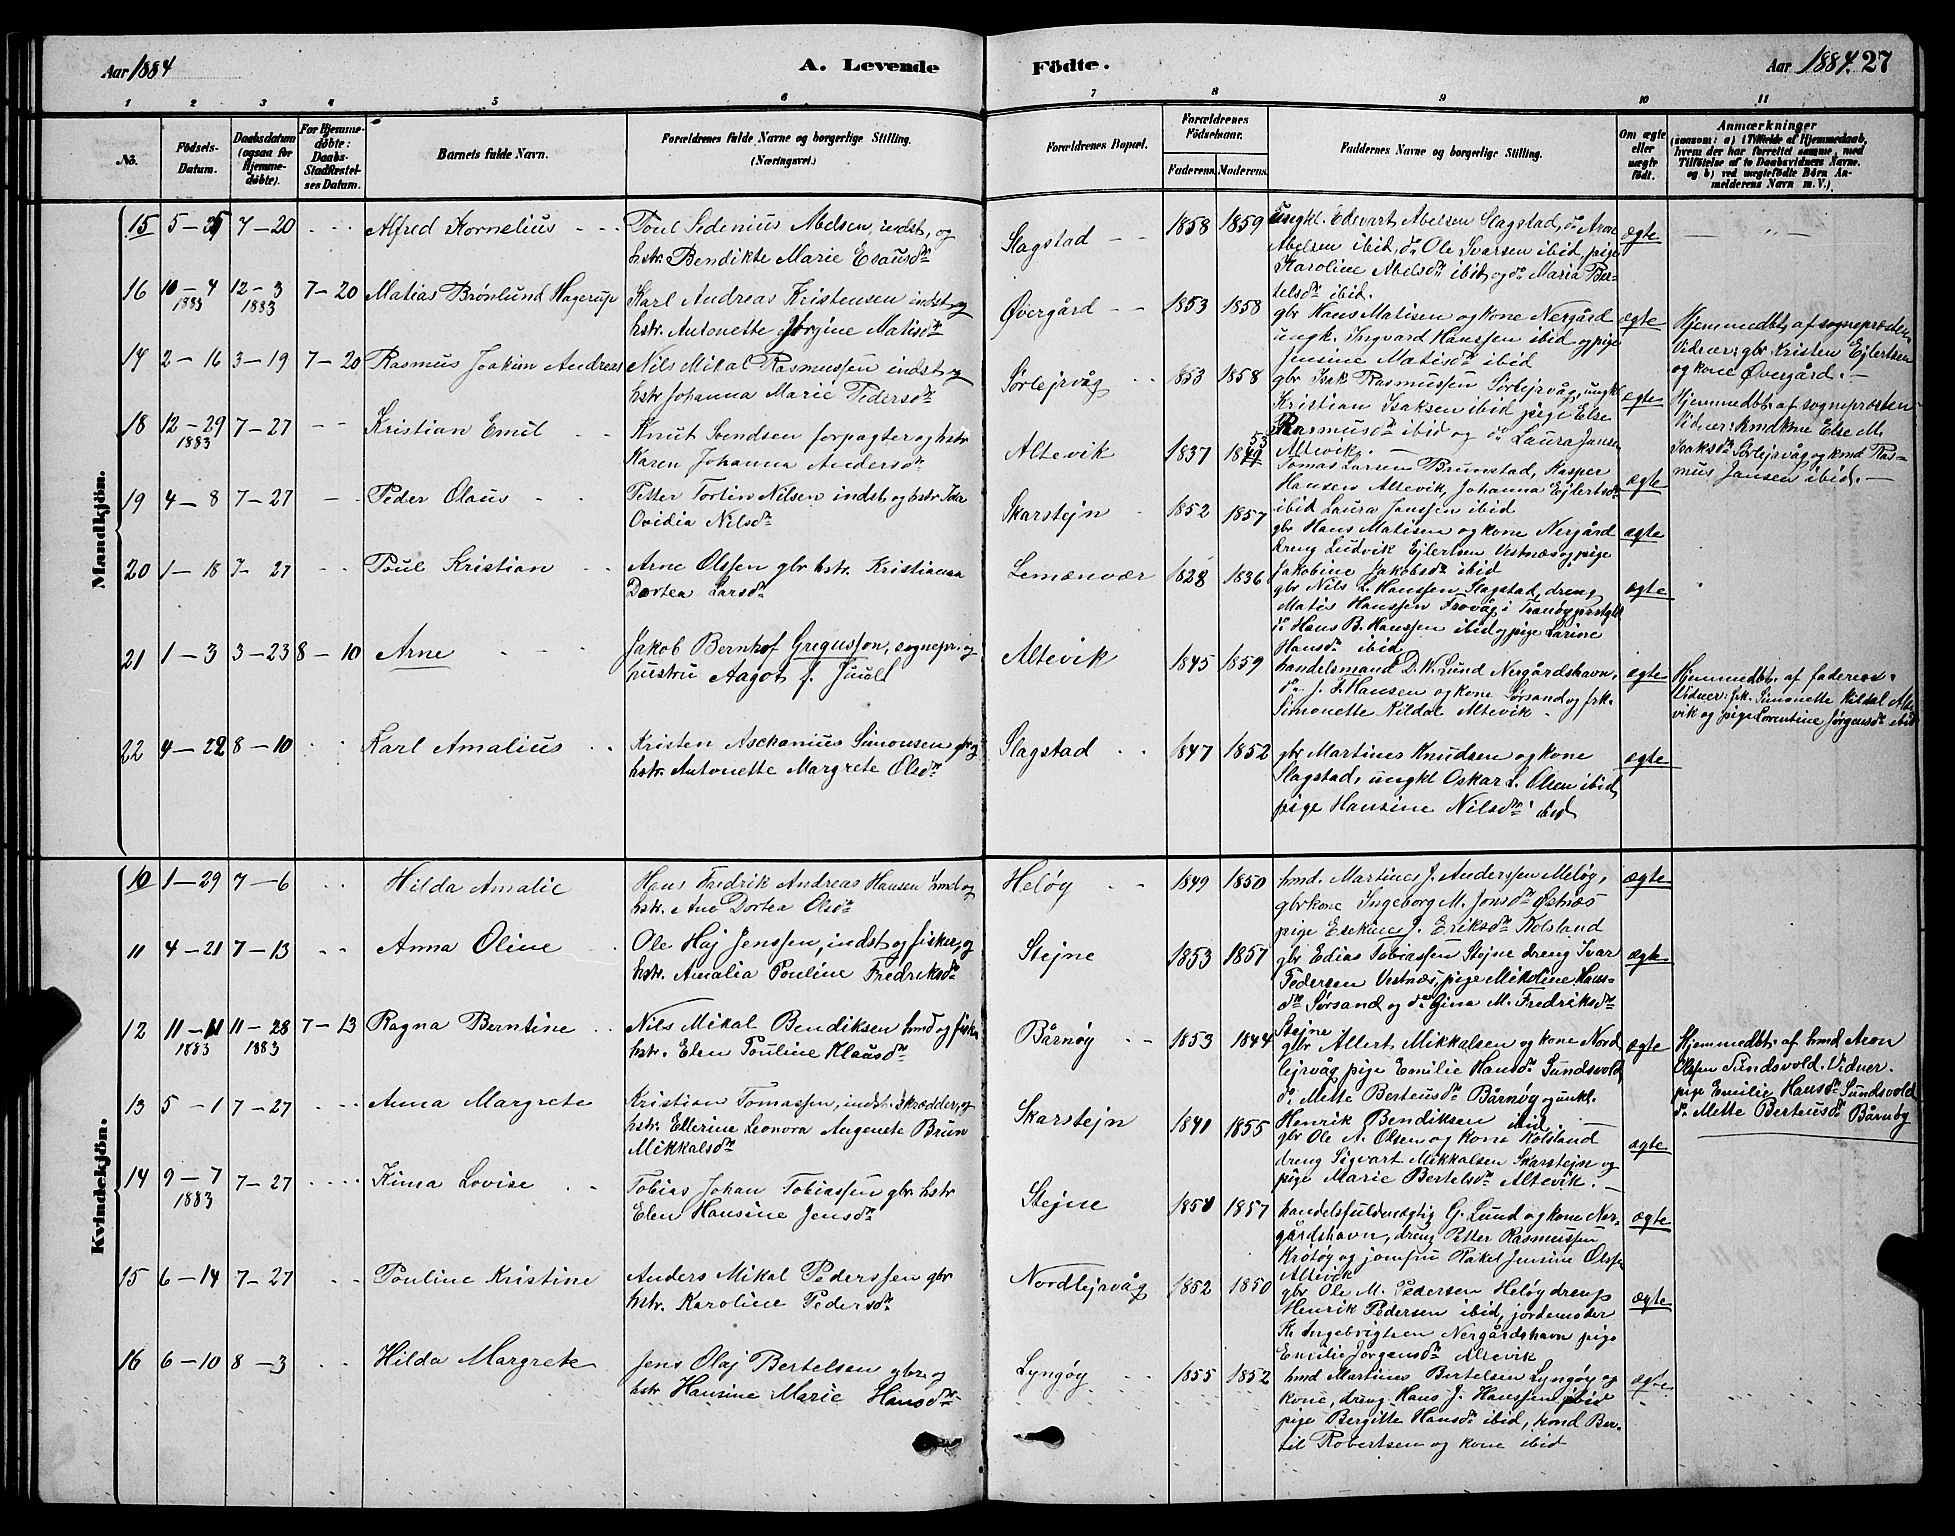 Aar 1884 A. Levende Födte. Aar 1884. 27
1 2 3 4 5 6 7 8 9 10 11
No. Födsels-Datum. Daabsdatum (ogsaa for Hjemme-döbte). For Hjemme-döbte: Daabs-Stadfæstel-ses Datum. Barnets fulde Navn. Forældrenes fulde Navne og borgerlige Stilling. (Næringsvei.) Forældrenes Bopæl. Forældrenes Födselsaar. Faderens. Moderens. Faddernes Navne og borgerlige Stilling. Om ægte eller uægte födt. Anmærkninger (saasom: a) i Tilfælde af Hjemmedaab, hvem der har forrettet samme, med Tilföielse af to Daabsvidners Navne. og b) ved uægtefödte Börn An-melderens Navn m. V.)
Mandkjön.
15 5 – 5 7 – 20 Alfred Kornelius
Poul Sedenius Abelsen, indst, og
hstr. Bendikte Marie Esausdtr
Slagstad 1858 1859
Ungkl. Edevart Abelsen Slagstad, do Aron
Abelsen ibid, do Ole Svarsen ibid, pige
Karoline Abelsdtr ibid og do Maria Ber-
telsdtr ibid.
ægte
16 10 – 4 1883 12 – 3 1883 7 – 20 Matias Brønlund Hagerup
Karl Andreas Kristensen indst og
hstr. Antonette Jørgine Matisdtr
Øvergård 1853 1858
gbr Hans Matisen og kone Nergård
ungk. Ingvard Hanssen ibid og pige
Jensine Matisdtr ibid
ægte
Hjemmedbt. af sognepræsten
Vidner: gbr Kristen Ejlertsen
og kone Øvergård. –
17 2 – 16 3 – 19 7 – 20 Rasmus Joakim Andreas
Nils Mikal Rasmussen indst og
hstr Johanna Marie Pedersdtr
Sørlejrvåg 1853 1858
gbr Isak Rasmussen Sørlejrvåg, ungkl
Kristian Isaksen ibid pige Else
Rasmusdtr ibid og do Laura Jansen
Altevik. –
ægte
Hjemmedbt. af sognepræsten
Vidner: kmdkone Else M.
Isaksdtr Sørlejrvåg og kmd Ras-
mus Jansen ibid. –
18 12 – 29 1883 7 – 27 Kristian Emil
Knut Svendsen forpagter og hstr
Karen Johanna Andersdtr
Altevik 1837 1853
Tomas Larsen Brunstad, Kasper
Hansen Altevik Johanna Ejlertsdtr
ibid Laura Janssen ibid
ægte
19 4 – 8 7 – 27 Peder Olaus
Petter Tortin Nilsen indst og hstr Ida
Ovidia Nilsdtr
Skarstejn 1852 1857
gbr Hans Matisen og kone Nergård
dreng Ludvik Ejlertsen Vestnæs og pige
Jakobine Jakobsdtr ibid
ægte
20 1 – 18 7 – 27 Poul Kristian
Arne Olssen gbr hstr. Kristianna
Dortea Larsdtr
Lemænvær 1828 1836
gbr Nils L. Hanssen Slagstad, dreng
Matis Hanssen Frovåg i Tranøy prstgld
do Hans B. Hanssen ibid og pige Larine
Hansdtr ibid
ægte
21 1 – 3 3 – 23 8 – 10 Arne
Jakob Bernhof Gregussson, sognepr. og
hustru Aagot f. Juul
Altevik 1845 1859
handelsmand D. W. Lund Nergårdshavn,
do J. F. Hansen og kone Sørsand og frk.
Simonette Kildal Altevik.
ægte
Hjemmedbt. af faderen.
Vidner: frk. Simonette Kildal Alte-
vik og pige Lorentine Jørgensdtr ibid
22 4 – 22 8 – 10 Karl Amalius
Kristen Aschanius Simonsen gbr og
hstr. Antonette Margrete Olsdtr
Slagstad 1847 1852
gbr Martines Knudsen og kone
Slagstad, ungkl Oskar L. Olsen ibid
pige Hansine Nilsdtr ibid
ægte
Kvindekjön.
10 1 – 29 7 – 6 Hilda Amalie
Hans Fredrik Andreas Hansen hmd og
hstr. Ane Dortea Olsdtr
Heløy 1849 1850
hmd. Martines J. Anderssen Meløy,
gbrkone Ingeborg M. Jonsdtr Østnæs
pige Esekine J. Eriksdtr Kolsland
ægte
11 4 – 21 7 – 13 Anna Oline
Ole Haj Jenssen, indst og fisker, og
hstr. Amalia Pouline Fredriksdtr
Stejne 1853 1857
gbr Edias Tobiassen Stejne dreng Ivar
Pedersen Vestnæs, pige Mikoline Hans-
dtr Sørsand og do Gina M. Fredriksdtr
Stejne
ægte
12 11 – 11 1883 11 – 28 1883 7 – 13 Ragna Berntine
Nils Mikal Bendiksen hmd og fisker
hstr. Elen Pouline Klausdtr
Bårnøy 1853 1844
gbr Albert Mikkalsen og kone Nord
lejrvåg pige Emilie Hansdtr Sundsvold,
do Mette Berteusdtr Bårnøy og unkl.
Henrik Bendiksen ibid. –
ægte
Hjemmedbt. af hmd Aron
Olssen Sundsvold. Vidner.
pige Emilie Hansdtr Sundsvold
do Mette Berteusdtr Bårnøy
13 5 – 1 7 – 27 Anna Margrete
Kristian Tomassen, indst. skrædder, og
hstr. Ellerine Leonora Angenete Brun
Mikkalsdtr
Skarstejn 1841 1855
gbr Ole A. Olsen og kone Kolsland
dreng Sigvart Mikkalsen Skarstejn og
pige Marie Bertelsdtr Altevik. –
ægte
14 9 – 7 1883 7 – 27 Kinna Lovise
Tobias Johan Tobiassen gbr hstr
Elen Hansine Jensdtr
Stejne 1850 1857
handelsfuldmægtig G. Lund og kone Ner-
gårdshavn, dreng Petter Rasmussen
Krøtøy og jomfru Rakel Jensine Olssen
Altevik
ægte
15 6 – 14 7 – 27 Pouline Kristine
Anders Mikal Pederssen gbr
hstr. Karoline Pedersdtr
Nordlejrvåg 1852 1850
gbr Ole M. Pedersen Heløy dreng
Henrik Pedersen ibid, jordemoder
K. Ingebrigtsen Nergårdshavn pige
Emilie Jørgensdtr Altevik
ægte
16 6 – 10 8 – 3 Hilda Margrete
Jens Olaj Bertelsen gbr. og
hstr Hansine Marie Hansdtr
Lyngøy 1855 1852
hmd Martines Bertelsen Lyngøy og
kone, dreng Hans J. Hanssen ibid
pige Bergitte Hansdtr ibid, kmd Ber-
til Robertsen og kone ibid
ægte